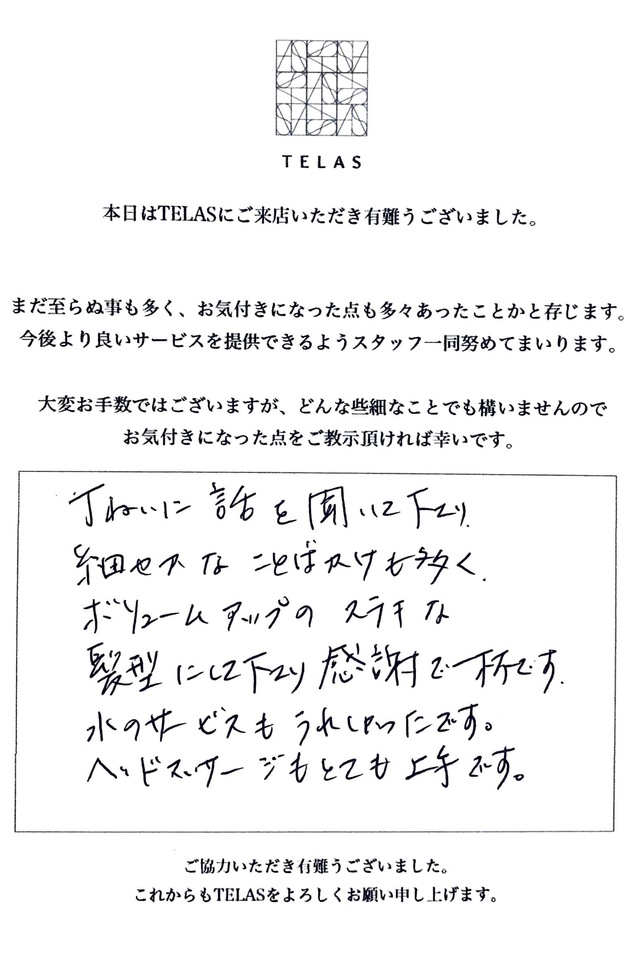 TELAS
本日はTELASにご来店いただき有難うございました。
まだ至らぬ事も多く、お気付きになった点も多々あったことかと存じます。
今後より良いサービスを提供できるようスタッフ一同努めてまいります。
大変お手数ではございますが、どんな些細なことでも構いませんので
お気付きになった点をご教示頂ければ幸いです。
丁ねいに話を聞いて下さり
細やかな ことばかけも多く
ボリュームアップの ステキな
髪型にして下さり感謝で一杯です
水のサービスもうれしかったです。
ヘッドスッサージもとても上手です。
ご協力いただき有難うございました。
これからもTELASをよろしくお願い申し上げます。